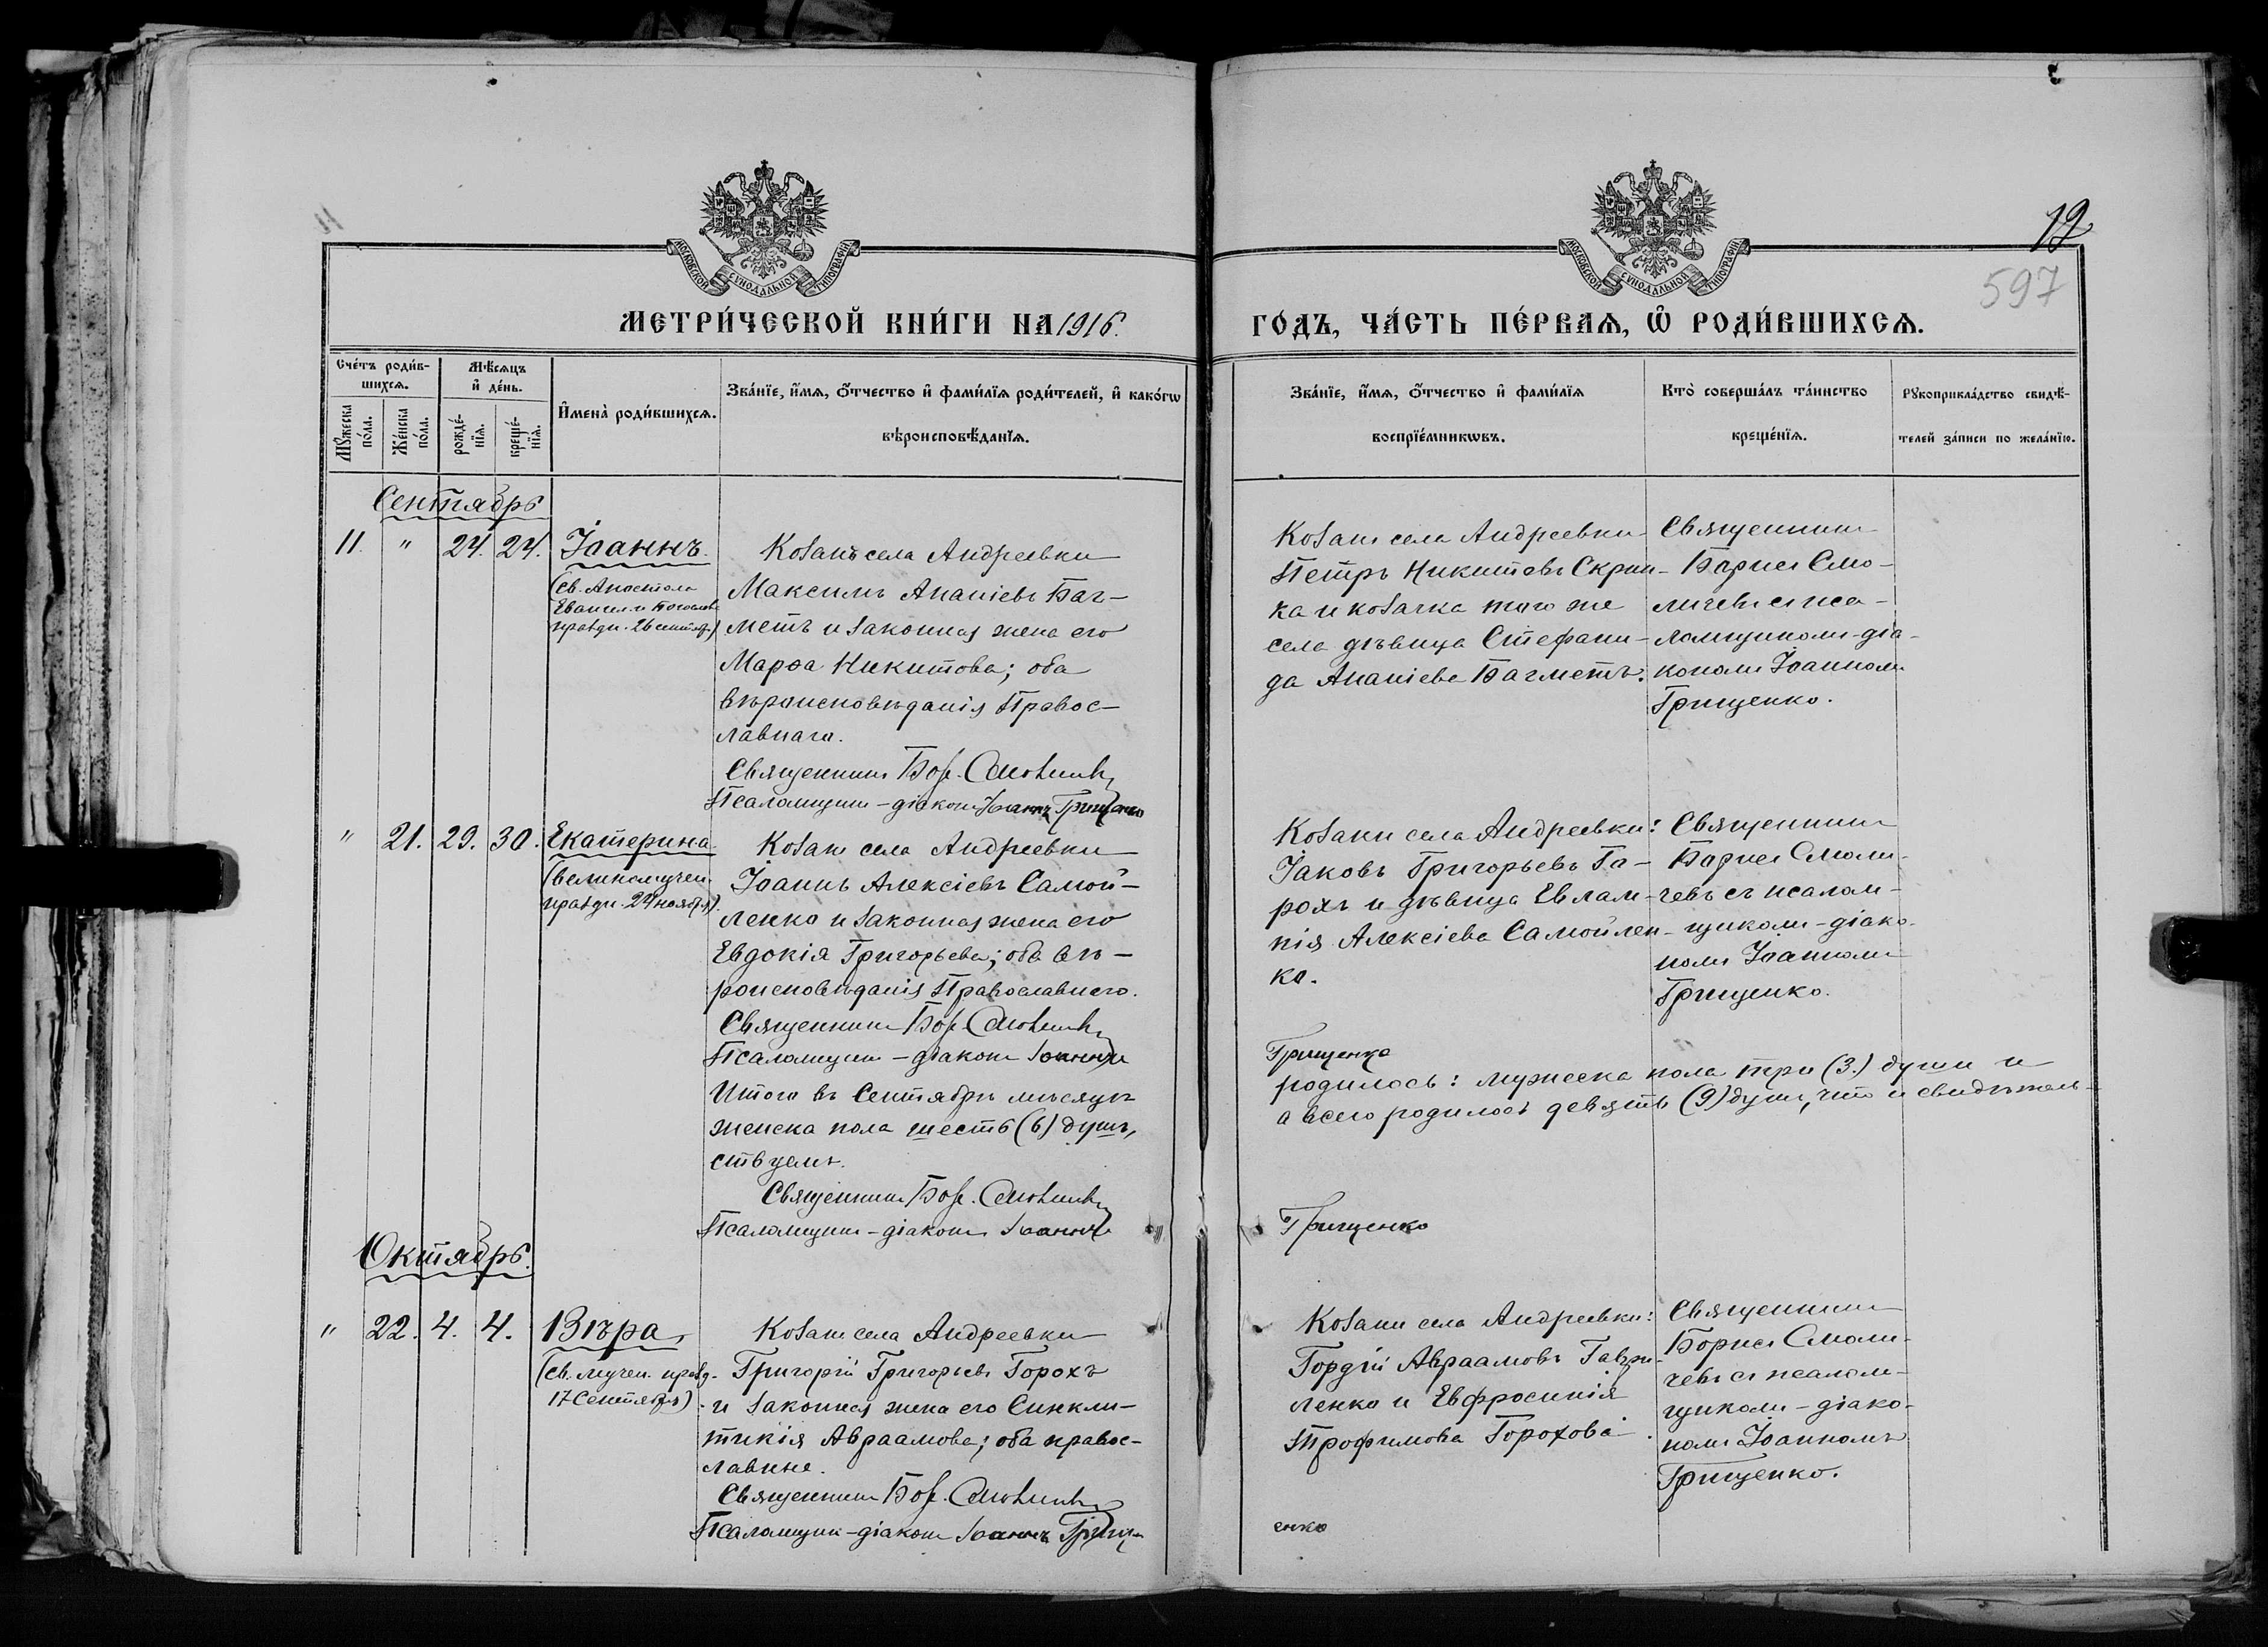 12
597
МОСКОВСКОЙ СУНОДАЛЬНОЙ ТИПОГРАФІИ
МОСКОВСКОЙ СУНОДАЛЬНОЙ ТИПОГРАФІИ
МЕТРИ́ЧЕСКОЙ КНИ́ГИ НА 1916.
ГО́ДЪ, ЧА́СТЬ ПЕ́РВАѦ, Ѡ҆ РОДИ́ВШИХСѦ.
Сче́тъ роди́в-
шихсѧ.
Мѣ́сѧцъ
и҆ де́нь.
Мꙋ́жеска
по́ла.
Же́нска
по́ла.
рожде́-
нїѧ.
креще́-
нїѧ.
И҆мена̀ роди́вшихсѧ.
Зва́нїе, и҆́мѧ, ѻ҆́тчество и҆ фами́лїѧ роди́телей, и҆ како́гѡ
вѣроисповѣ́данїѧ.
Зва́нїе, и҆́мѧ, ѻ҆́тчество и҆ фами́лїѧ
воспрїе́мникѡвъ.
Кто̀ соверша́лъ та́инство
креще́нїѧ.
Рꙋкоприкла́дство свидѣ́-
телей за́писи по жела́нїю.
Сентябрь
11. " 24. 24. Іоаннъ.
(Св. Апостола
Евангел. и Богослова
праздн. 26 сентяб.)
Козакъ села Андреевки
Максимъ Ананіевъ Баг-
метъ и законная жена его
Марѳа Никитова; оба
вѣроисповѣданія Правос-
лавнаго.
Священникъ Бор. Смоличевъ
Псаломщикъ-діаконъ Іоаннъ Грищенко
Козакъ села Андреевки
Петръ Никитовъ Скрип-
ка и козачка того же
села дѣвица Стефани-
да Ананіева Багметъ.
Священникъ
Борисъ Смо-
личевъ съ пса-
ломщикомъ-діа-
кономъ Іоанномъ
Грищенко.
" 21. 29. 30. Екатерина.
(великомучен.
праздн. 24 ноября).
Козакъ села Андреевки
Іоаннъ Алексіевъ Самой-
ленко и законная жена его
Евдокія Григорьева; оба вѣ-
роисповѣданія Православнаго.
Священникъ Бор. Смоличевъ
Псаломщикъ-діаконъ Іоаннъ
Козаки села Андреевки:
Іаковъ Григорьевъ Го-
рохъ и дѣвица Евлам-
пія Алексіева Самойлен-
ко.
Священникъ
Борисъ Смоли-
чевъ съ псалом-
щикомъ-діако-
номъ Іоанномъ
Грищенко.
Грищенко
Итого въ Сентябрѣ мѣсяцѣ
родилось: мужеска пола три (3.) души и
женска пола шесть (6) душъ,
а всего родилось девять (9) душъ, что и свидѣтель-
ствуемъ.
Священникъ Бор. Смоличевъ
Псаломщикъ-діаконъ Іоаннъ
Грищенко
Октябрь.
" 22. 4. 4. Вѣра
(св. мучен. празд.
17 Сентября)
Козакъ села Андреевки
Григорій Григорьевъ Горохъ
и законная жена его Синкли-
тикія Авраамова; оба правос-
лавные.
Священникъ Бор. Смоличевъ
Псаломщикъ-діаконъ Іоаннъ Грищ
енко
Козаки села Андреевки:
Гордій Авраамовъ Гаври-
ленко и Евфросинія
Трофимова Горохова.
Священникъ
Борисъ Смоли-
чевъ съ псалом-
щикомъ-діако-
номъ Іоанномъ
Грищенко.